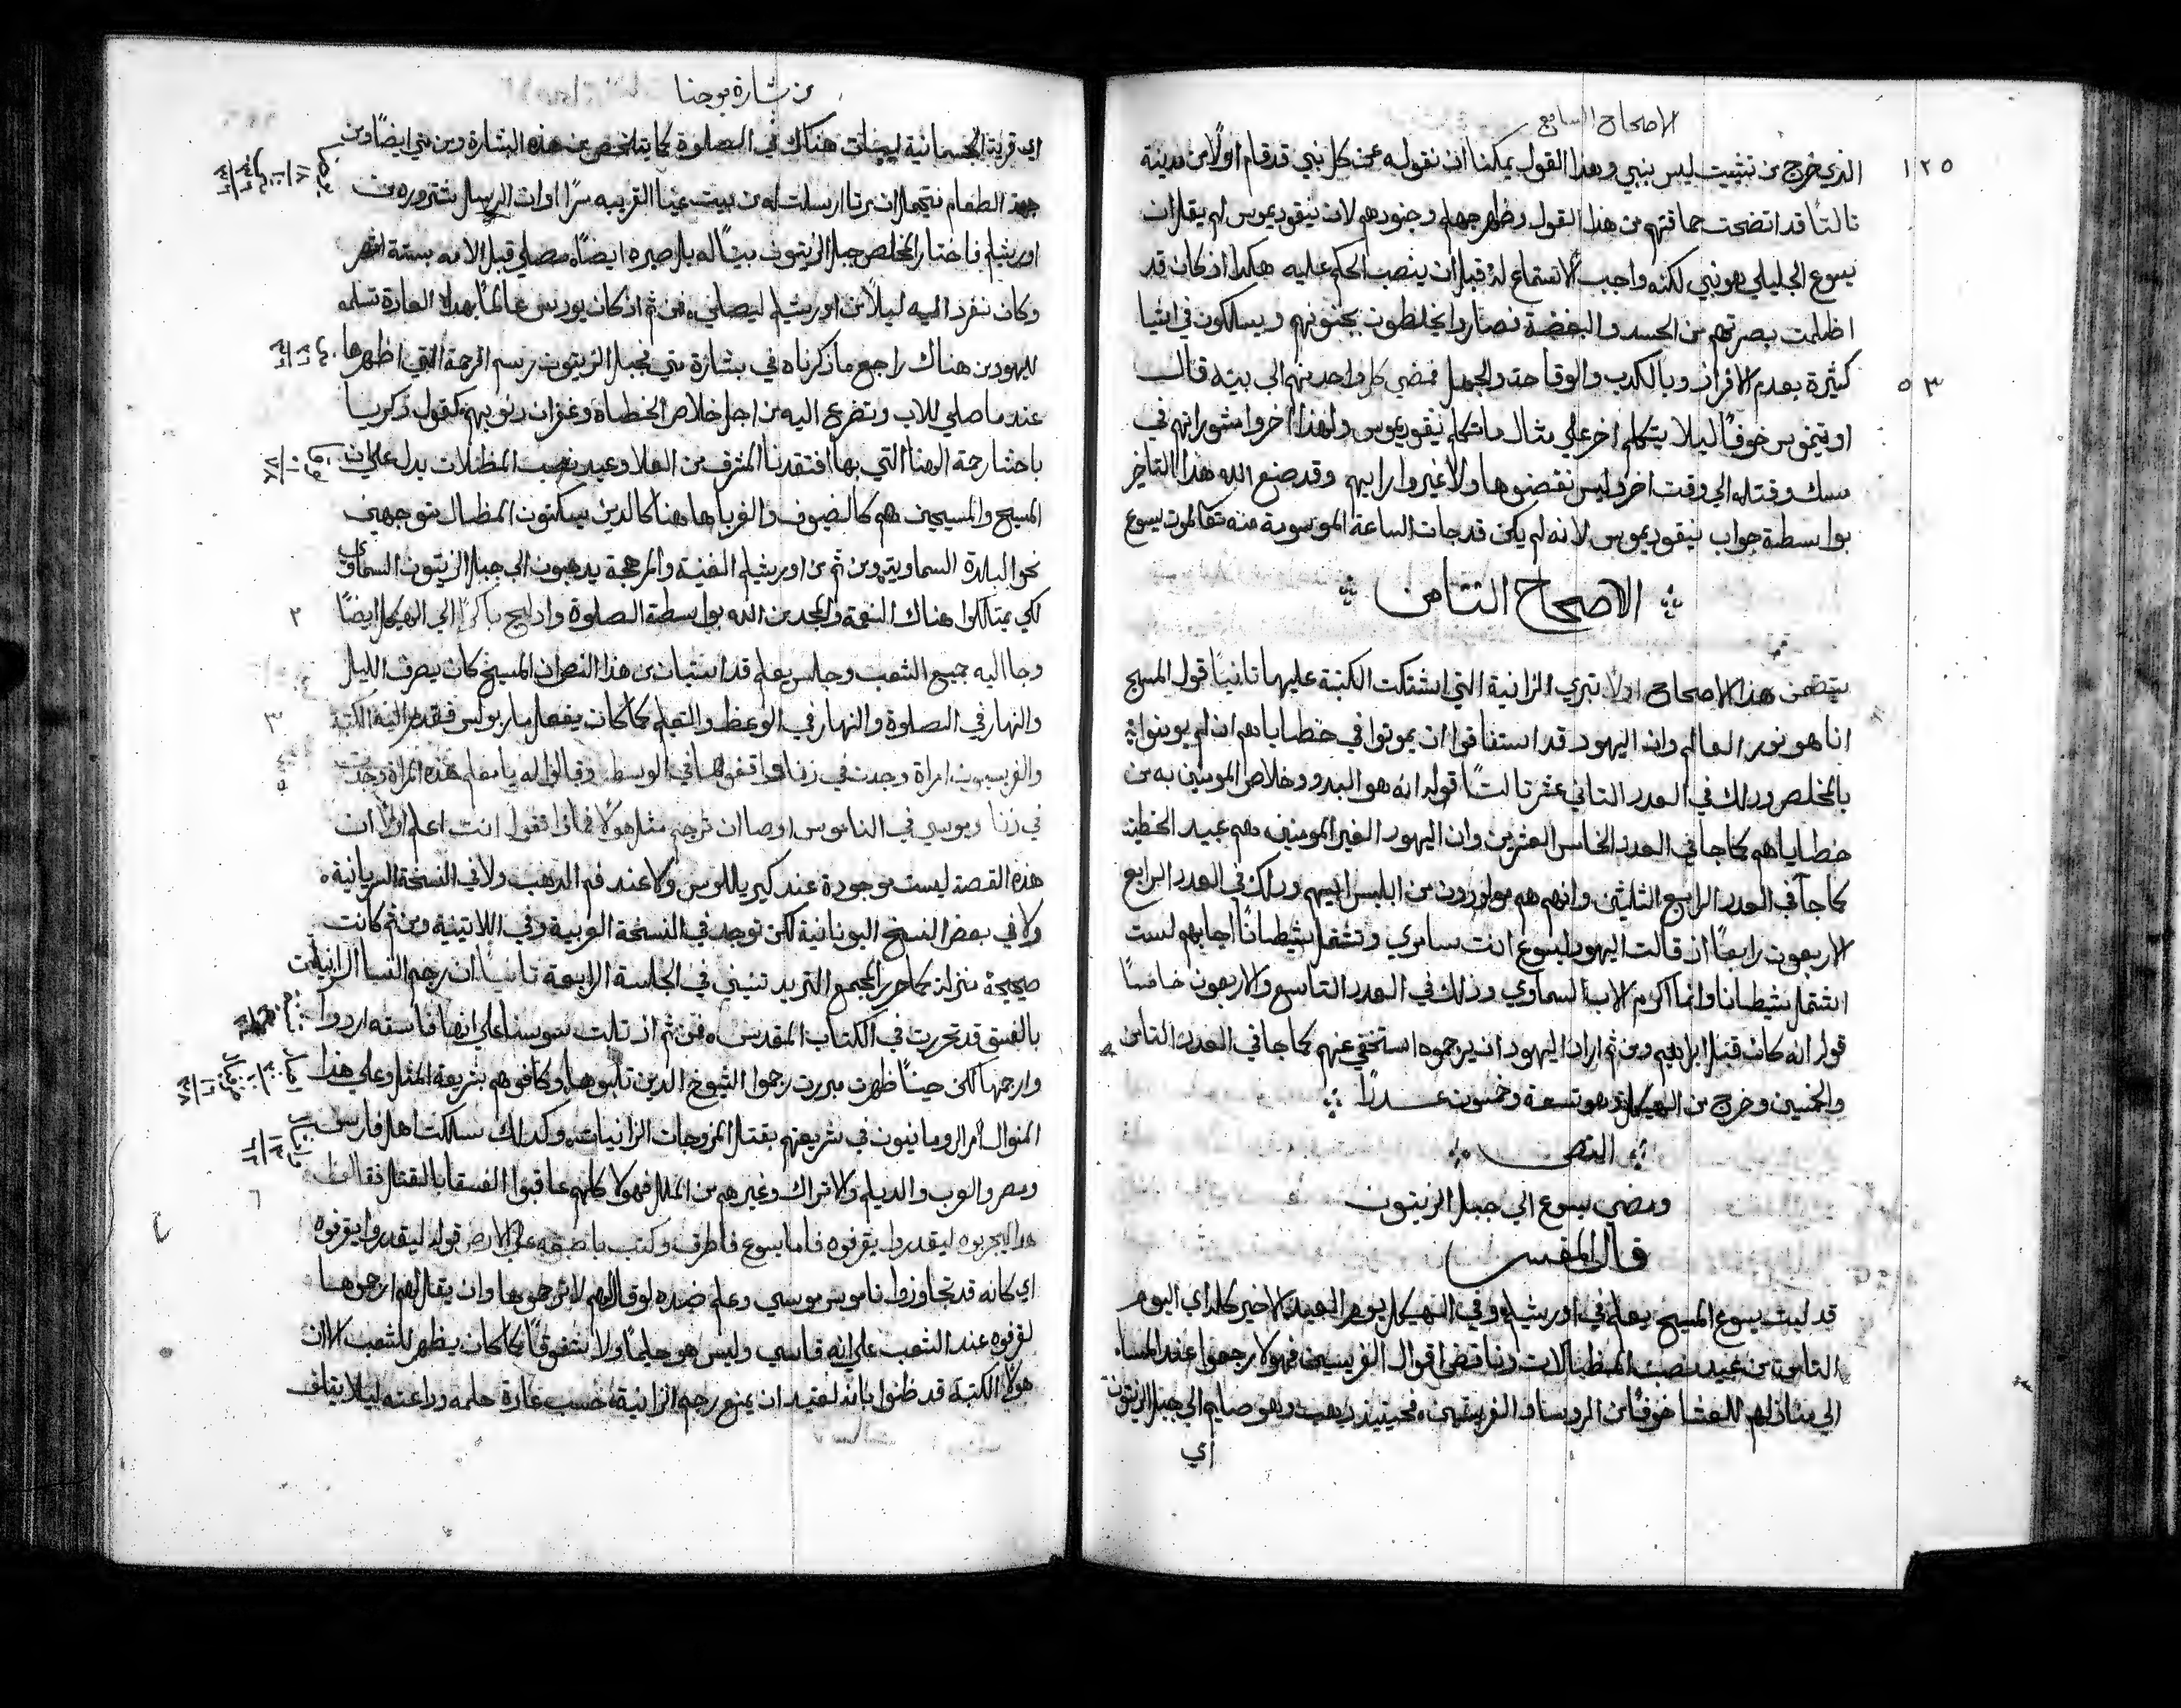 الاصحاح السابع
١٢٥
الذي خرج من تثبيت ليس بنبي وهذا القول يمكننا ان نقوله عن كل نبي قد قام اولًا من مدينة
تالتًا قد اتضحت حماقتهم من هذا القول وظهر جهلهم وجنودهم لان نيقوديموس لم يقل ان
يسوع الجليلي هو نبي لكنه واجب الاستماع له قبل ان ينصب الحكم عليه هكدا اذ كان قد
اظلمت بصيرتهم من الحسد والبغضة فصاروا يخلطون بجنونهم ويسلكون في اشيا
كثيرة بعدم الافراز وبالكدب والوقاحة والجهل فمضي كل واحد منهم الي بيته قال
٥٣
اوتيموس خوفًا ليلا يتكلم اخر علي مثال ما تكلم نيقوديموس ولهذا اخروا مشوراتهم في
مسك وقتله الي وقت اخر وليس نقضوها ولا غيروا رايهم وقد صنع الله هذا التاخير
بواسطة جواب نيقوديموس لانه لم يكن قد جات الساعة الموسومة منه تعالموت يسوع
الاصحاح التامن
يتضمن هذا الاصحاح اولًا تبري الزانية التي اشتكت الكتبة عليها تانيًا قول المسيح
انا هو نور العالم وان اليهود قد استفاقوا ان يموتوا في خطاياهم ان لم يومنوا
بالمخلص ودلك في العدد التاني عشر تالتًا قوله انه هو البدو وخلاص المومنين به من
خطاياهم كما جا في العدد الخامس العشرين وان اليهود الغير المومنين هم عبيد الخطية
كما جا في العدد الرابع الثلثين وانهم هم مولودون من ابليس ابيهم ودلك في العدد الرابع
الاربعون رابعًا ان قالت اليهود ليسوع انت سامري وتشتمل شيطانًا اجابهم لست
اشتمل شيطانًا وانما اكرم الاب السماوي ودلك في العدد التاسع والاربعون خامسًا
قوله انه كان قبل ابراهيم ومن ثم اراد اليهود ان يرجموه استخفي عنهم كما جا في العدد التامن
والخمسين وخرج من الهيكل وهو تسعة وخمسون عددًا
النص
ومضي يسوع الي جبل الزيتون
قال المفسر
قد لبت يسوع المسيح يعلم في اورشليم وفي الهيكل يوم العيد الاخير كله اي اليوم
التامن من عيد نصب المظالات وناقض اقوال الفريسيين فهولا رجعوا عند المساء
الي منازلهم للعشا خوفًا من الروسا والفريسيين فحينيد دهب وهو صايم الي جبل الزيتون
اي
من بشارة يوحنا
اي قرية الجسمانية ليبات هناك في الصلوة كما يتلخص من هذه البشارة ومن متي ايضًا ومن
جهة الطعام يحتمل ان مرتا ارسلت له من بيت عنيا القريبه سرًا او ان الرسل اشتروره من
اورشليم فاختار المخلص جبل الزيتون بيتًا له بل صيره ايضًا مصلي قبل الامه بستة اشهر
وكان ينفرد اليه ليلًا من اورشليم ليصلي من ثم اذ كان يودس عالمًا بهذه العادة تسلمه
لليهود من هناك راجع ما ذكرناه في بشارة متي فجبل الزيتون رسم الرحمة التي اظهرها
عند ما صلي للاب وتضرع اليه من اجل خلاص الخطاة وغفران دنوبهم كقول زكريا
باحشا رحمة الهنا التي بها افتقدنا المشرف من العلا وعيد نصب المظلات يدل علي ان
المسيح والمسيحيين هم كالضيوف والغربا هاهنا كالدين يسكنون المظال متوجهين
نحو البلدة السماوية ومن ثم من اورشليم الغنية والمرهجة يدهبون الي جبل الزيتون السماوي
لكي يمتلكوا هناك النعمة والمجد من الله بواسطة الصلوة وادلج باكرًا الي الهيكل ايضًا
٢
وجا اليه جميع الشعب وجلس يعلم قد استبان من هذا النص ان المسيح كان يصرف الليل
والنهار في الصلوة والنهار في الوعظ والتعليم كما كان يفعل مار بولس فقدم اليه الكتبة
٣
والفريسيون امراة وجدت في زنا واقفوها في الوسط وقالوا له يا معلم هذه المراة وجدت
في زنا وموسي في الناموس اوصا ان ترجم مثل هولا فماذا تقول انت اعلم اولًا ان
٥
هذه القصة ليست موجودة عند كيرياللوس ولا عند فم الدهب ولا في النسخة السريانية
ولا في بعض النسخ اليونانية لكن توجد في النسخة العربية وفي اللاتينية ومن ثم كانت
صحيحة منزلة كما حرر المجمع التريدنتيني في الجلسة الرابعة تانيًا ان رجم النسا الزانيات
بالفسق قد تحررت في الكتاب المقدس فمن ثم اذ تلبت سوسنا علي انها فاسقه اردوا
وارجمها لكن حينًا ظهرت مبررت رجموا الشيوخ الدين تلبوها وكافوهم بشريعة المثل وعلي هذا
المنوال امر الرومانيون في شريعتهم بقتل المزوجات الزانيات وكدلك سلكت اهل فارس
ومصر والعرب والديلم والاتراك وغيرهم من الملل فهولا كلهم عاقبوا الفسقا بالقتل فقالوا
٦
هدا ليجربوه ليقدروا يقرفوه فاما يسوع فاطرق وكتب باصبعه علي الارض قوله ليقدروا يقرفوه
اي كانه قد تجاوزوا ناموس موسي وعلم ضده لو قال لهم لا ترجموها وان يقال لهم ارجموها
لقرفوه عند الشعب علي انه قاسي وليس هو حليمًا ولا شفوقًا كما كان يظهر للشعب الا ان
هولا الكتبة قد ظنوا بانه لعتيد ان يمنع رجم الزانية حسب عادة حلمه ودراعته ليلا يتلف